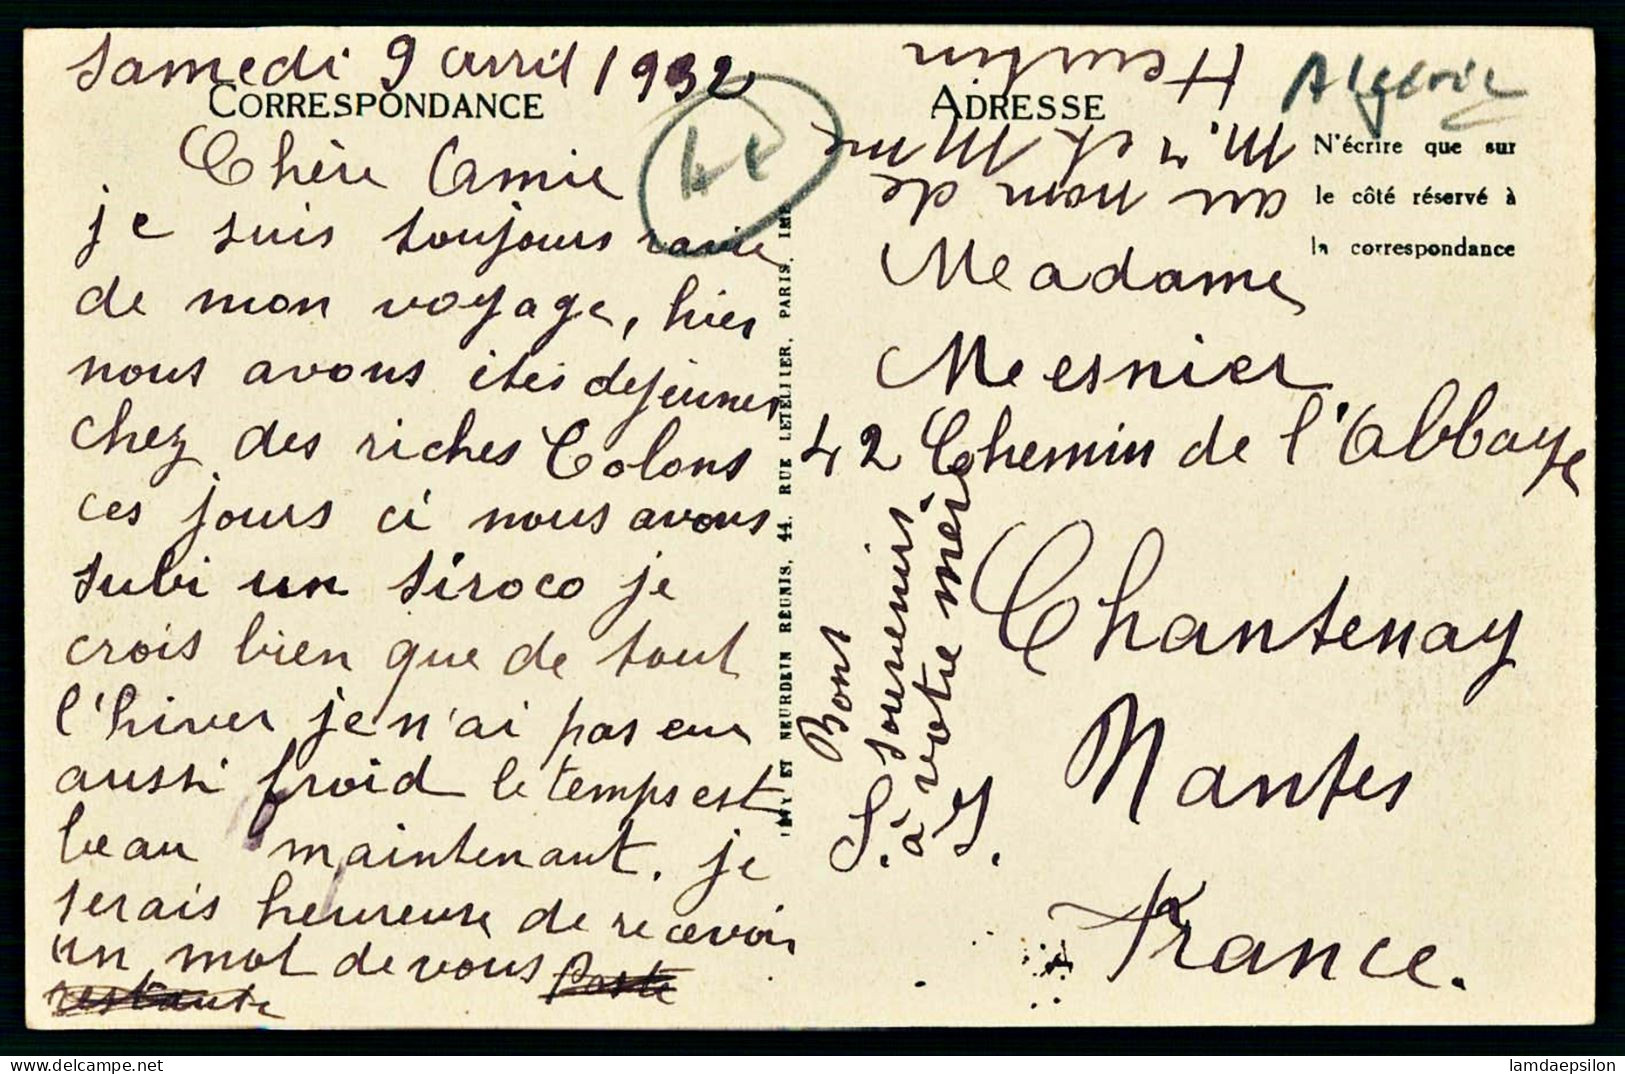 Samedi 9 avril 1932
CORRESPONDANCE
Chère Amie
je suis toujours ravie
de mon voyage, hier
nous avons étés dejeuner
chez des riches Colons
ces jours ci nous avons
subi un siroco je
crois bien que de tout
l'hiver je n'ai pas eu
aussi froid le temps est
beau maintenant. je
serais heureuse de recevoir
un mot de vous poste
restante
LEVY ET NEURDEIN RÉUNIS, 44, RUE LETELLIER, PARIS. IMP
ADRESSE
Algérie
N'écrire que sur
le côté réservé à
la correspondance
au nom de
M.r et Mme
Heurtin
Meadame
Mesnier
42 Chemin de l'Abbaye
Chantenay
Nantes
France.
Bont
souvenirs
à votre mère
S. J.
delcampe.net
lamdaepsilon